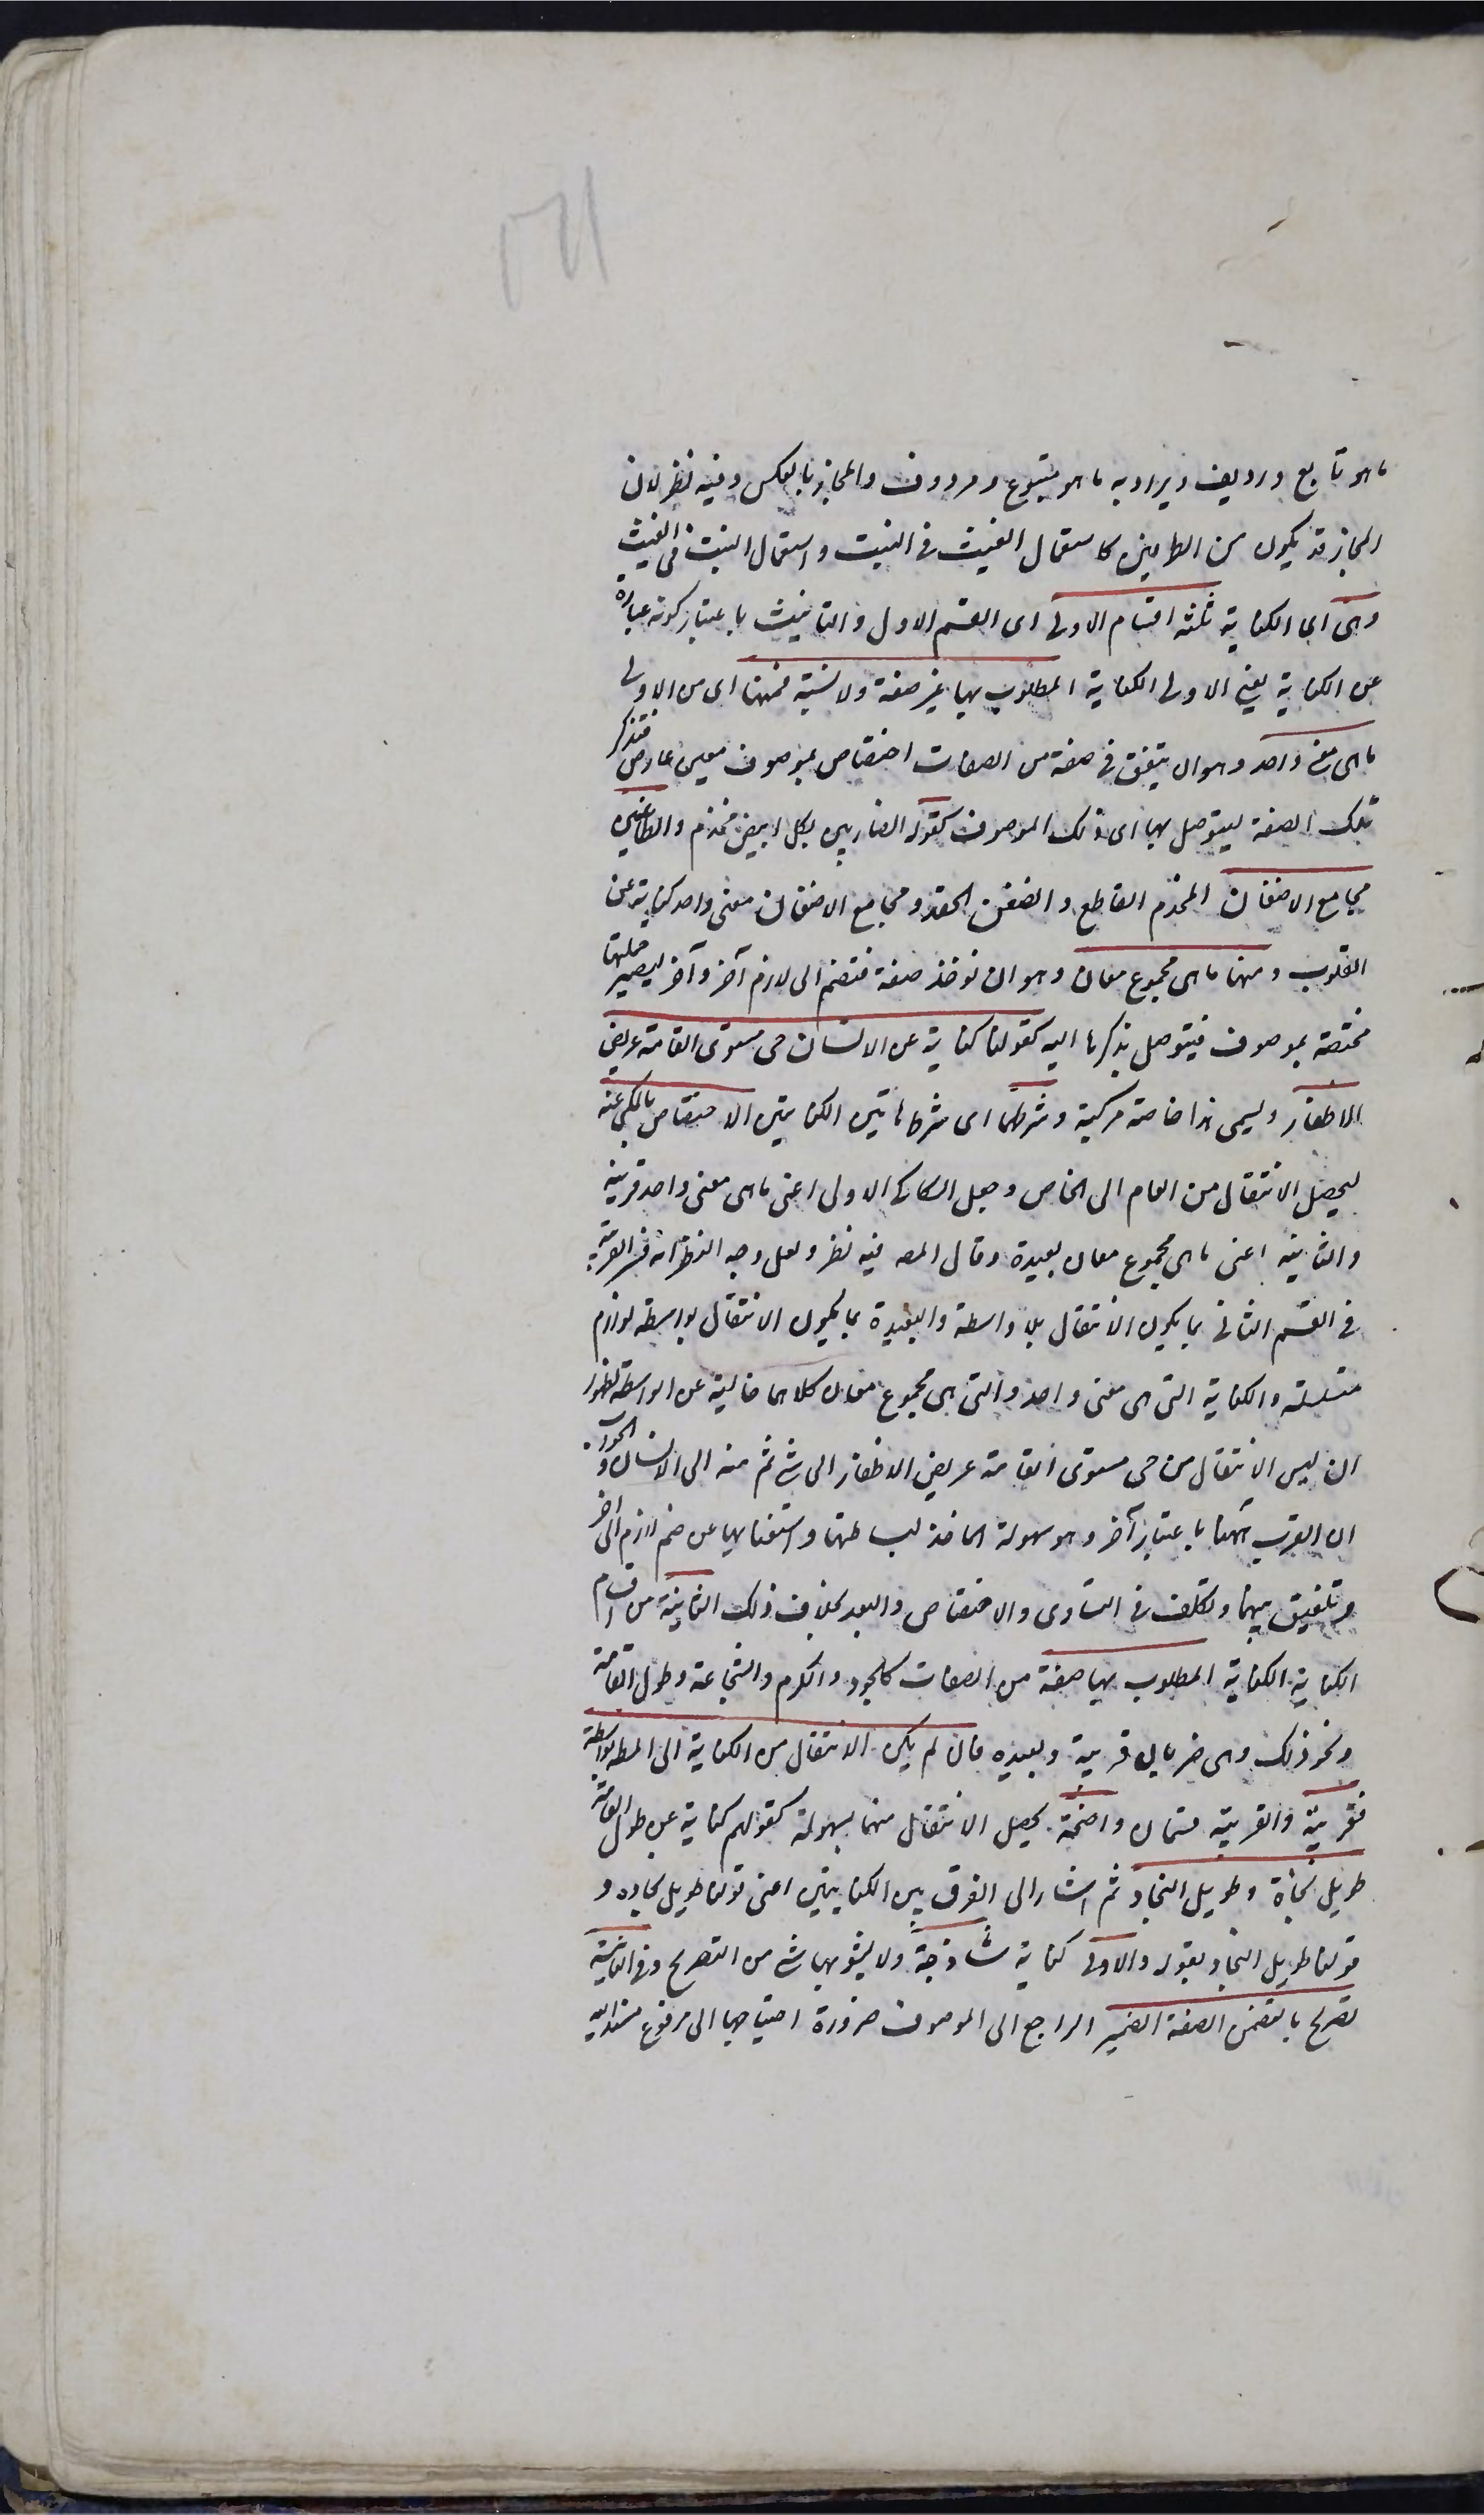 ما هو تابع ورديف ويراد به ما هو متبوع ومردوف والمجاز بالعكس وفيه نظر لان
المجاز قد يكون من الطرفين كاستعمال الغيث فى النبت واستعمال النبت فى الغيث
وهى اى الكناية ثلثة اقسام الاولى اى القسم الاول والتانيث باعتبار كونه عبارة
عن الكناية يعنى الاولى الكناية المطلوب بها غير صفة ولا نسبة فمنها اى من الاولى
ما هى معنى واحد وهو ان يتفق فى صفة من الصفات اختصاص بموصوف معين عارض فتذكر
تلك الصفة ليتوصل بها الى ذلك الموصوف كقوله الضاربين بكل ابيض مخذم والطاعنين
مجامع الاضغان المخذم القاطع والضغن الحقد ومجامع الاضغان معنى واحد كناية عن
القلوب ومنها ما هى مجموع معان وهو ان تؤخذ صفة فتضم الى لازم آخر وآخر ليصير جملتها
مختصة بموصوف فيتوصل بذكرها اليه كقولنا كناية عن الانسان حى مستوى القامة عريض
الاظفار ويسمى هذا خاصة مركبة وشرطهما اى شرط هاتين الكنايتين الاختصاص بالمكنى عنه
ليحصل الانتقال من العام الى الخاص وجعل السكاكى الاولى اعنى ما هى معنى واحد قريبة
والثانية اعنى ما هى مجموع معان بعيدة وقال المصـ فيه نظر ولعل وجه النظر انه فسر القريبة
فى القسم الثانى بما يكون الانتقال بلا واسطة والبعيدة بما يكون الانتقال بواسطة لوازم
متسلسلة والكناية التى هى معنى واحد والتى هى مجموع معان كلاهما خالية عن الواسطة لظهور
ان ليس الانتقال من حى مستوى القامة عريض الاظفار الى شئ ثم منه الى الانسان والجواب
ان القرب ههنا باعتبار آخر وهو سهولة الماخذ لبساطتها واستغنائها عن ضم لازم الى اخر
وتلفيق بينهما وتكلف فى التساوى والاختصاص والبعد بخلاف ذلك الثانية من اقسام
الكناية الكناية المطلوب بها صفة من الصفات كالجود والكرم والشجاعة وطول القامة
ونحو ذلك وهى ضربان قريبة وبعيده فان لم يكن الانتقال من الكناية الى المطـ بواسطة
فقريبة والقريبة قسمان واضحة يحصل الانتقال منها بسهولة كقولهم كناية عن طول القامة
طويل نجاده وطويل النجاد ثم اشار الى الفرق بين الكنايتين اعنى قولنا طويل نجاده و
قولنا طويل النجاد بقوله والاولى كناية ساذجة ولا يشوبها شئ من التصريح وفى الثانية
تصريح ما لتضمن الصفة الضمير الراجع الى الموصوف ضرورة احتياجها الى مرفوع مسند اليه